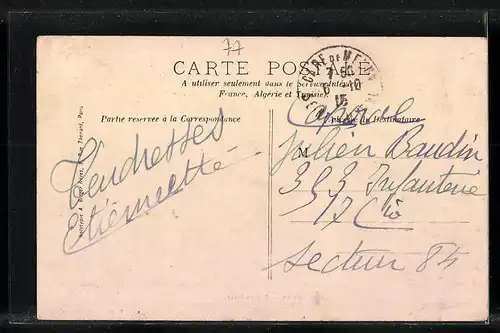 77
CARTE POSTALE
A utiliser seulement dans le Service Intérieur
France, Algérie et Tunisie
Partie reservée à la Correspondance
Adresse du Destinataire
Tendresses
Etiennette
M
Caporal
Julien Baudin
303 Infanterie
17 Cie
Secteur 84